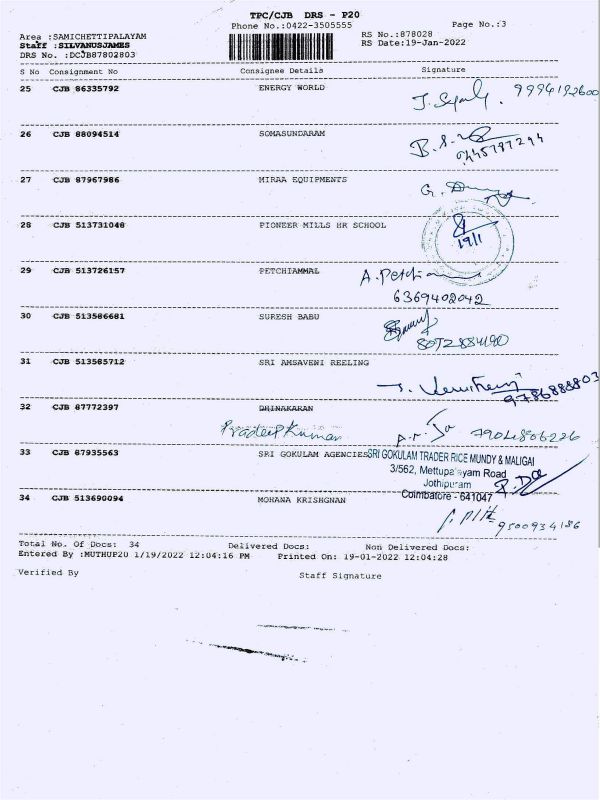 TPC/CJB DRS - P20
Phone No.:0422-3505555
Page No.:3
Area :SAMICHETTIPALAYAM
RS No.:878028
Staff :SILVANUSJAMES
RS Date:19-Jan-2022
DRS No. :DCJB87802803
S No Consignment No Consignee Details Signature
25 CJB 86335792 ENERGY WORLD
9994192600
26 CJB 88094514 SOMASUNDARAM
B.S.
27 CJB 87967986 MIRAA EQUIPMENTS
G.
28 CJB 513731048 PIONEER MILLS HR SCHOOL
19/1
29 CJB 513726157 PETCHIAMMAL
A. Petchiamm
6369402042
30 CJB 513586681 SURESH BABU
31 CJB 513585712 SRI AMSAVENI REELING
9786888803
32 CJB 87772397 DHINAKARAN
Pradeep Kumar
33 CJB 87935563 SRI GOKULAM AGENCIES
SRI GOKULAM TRADER RICE MUNDY & MALIGAI
3/562, Mettupalayam Road
Jothipuram
Coimbatore - 641047
34 CJB 513690094 MOHANA KRISHGNAN
9500934186
Total No. Of Docs: 34 Delivered Docs: Non Delivered Docs:
Entered By :MUTHUP20 1/19/2022 12:04:16 PM Printed On: 19-01-2022 12:04:28
Verified By Staff Signature